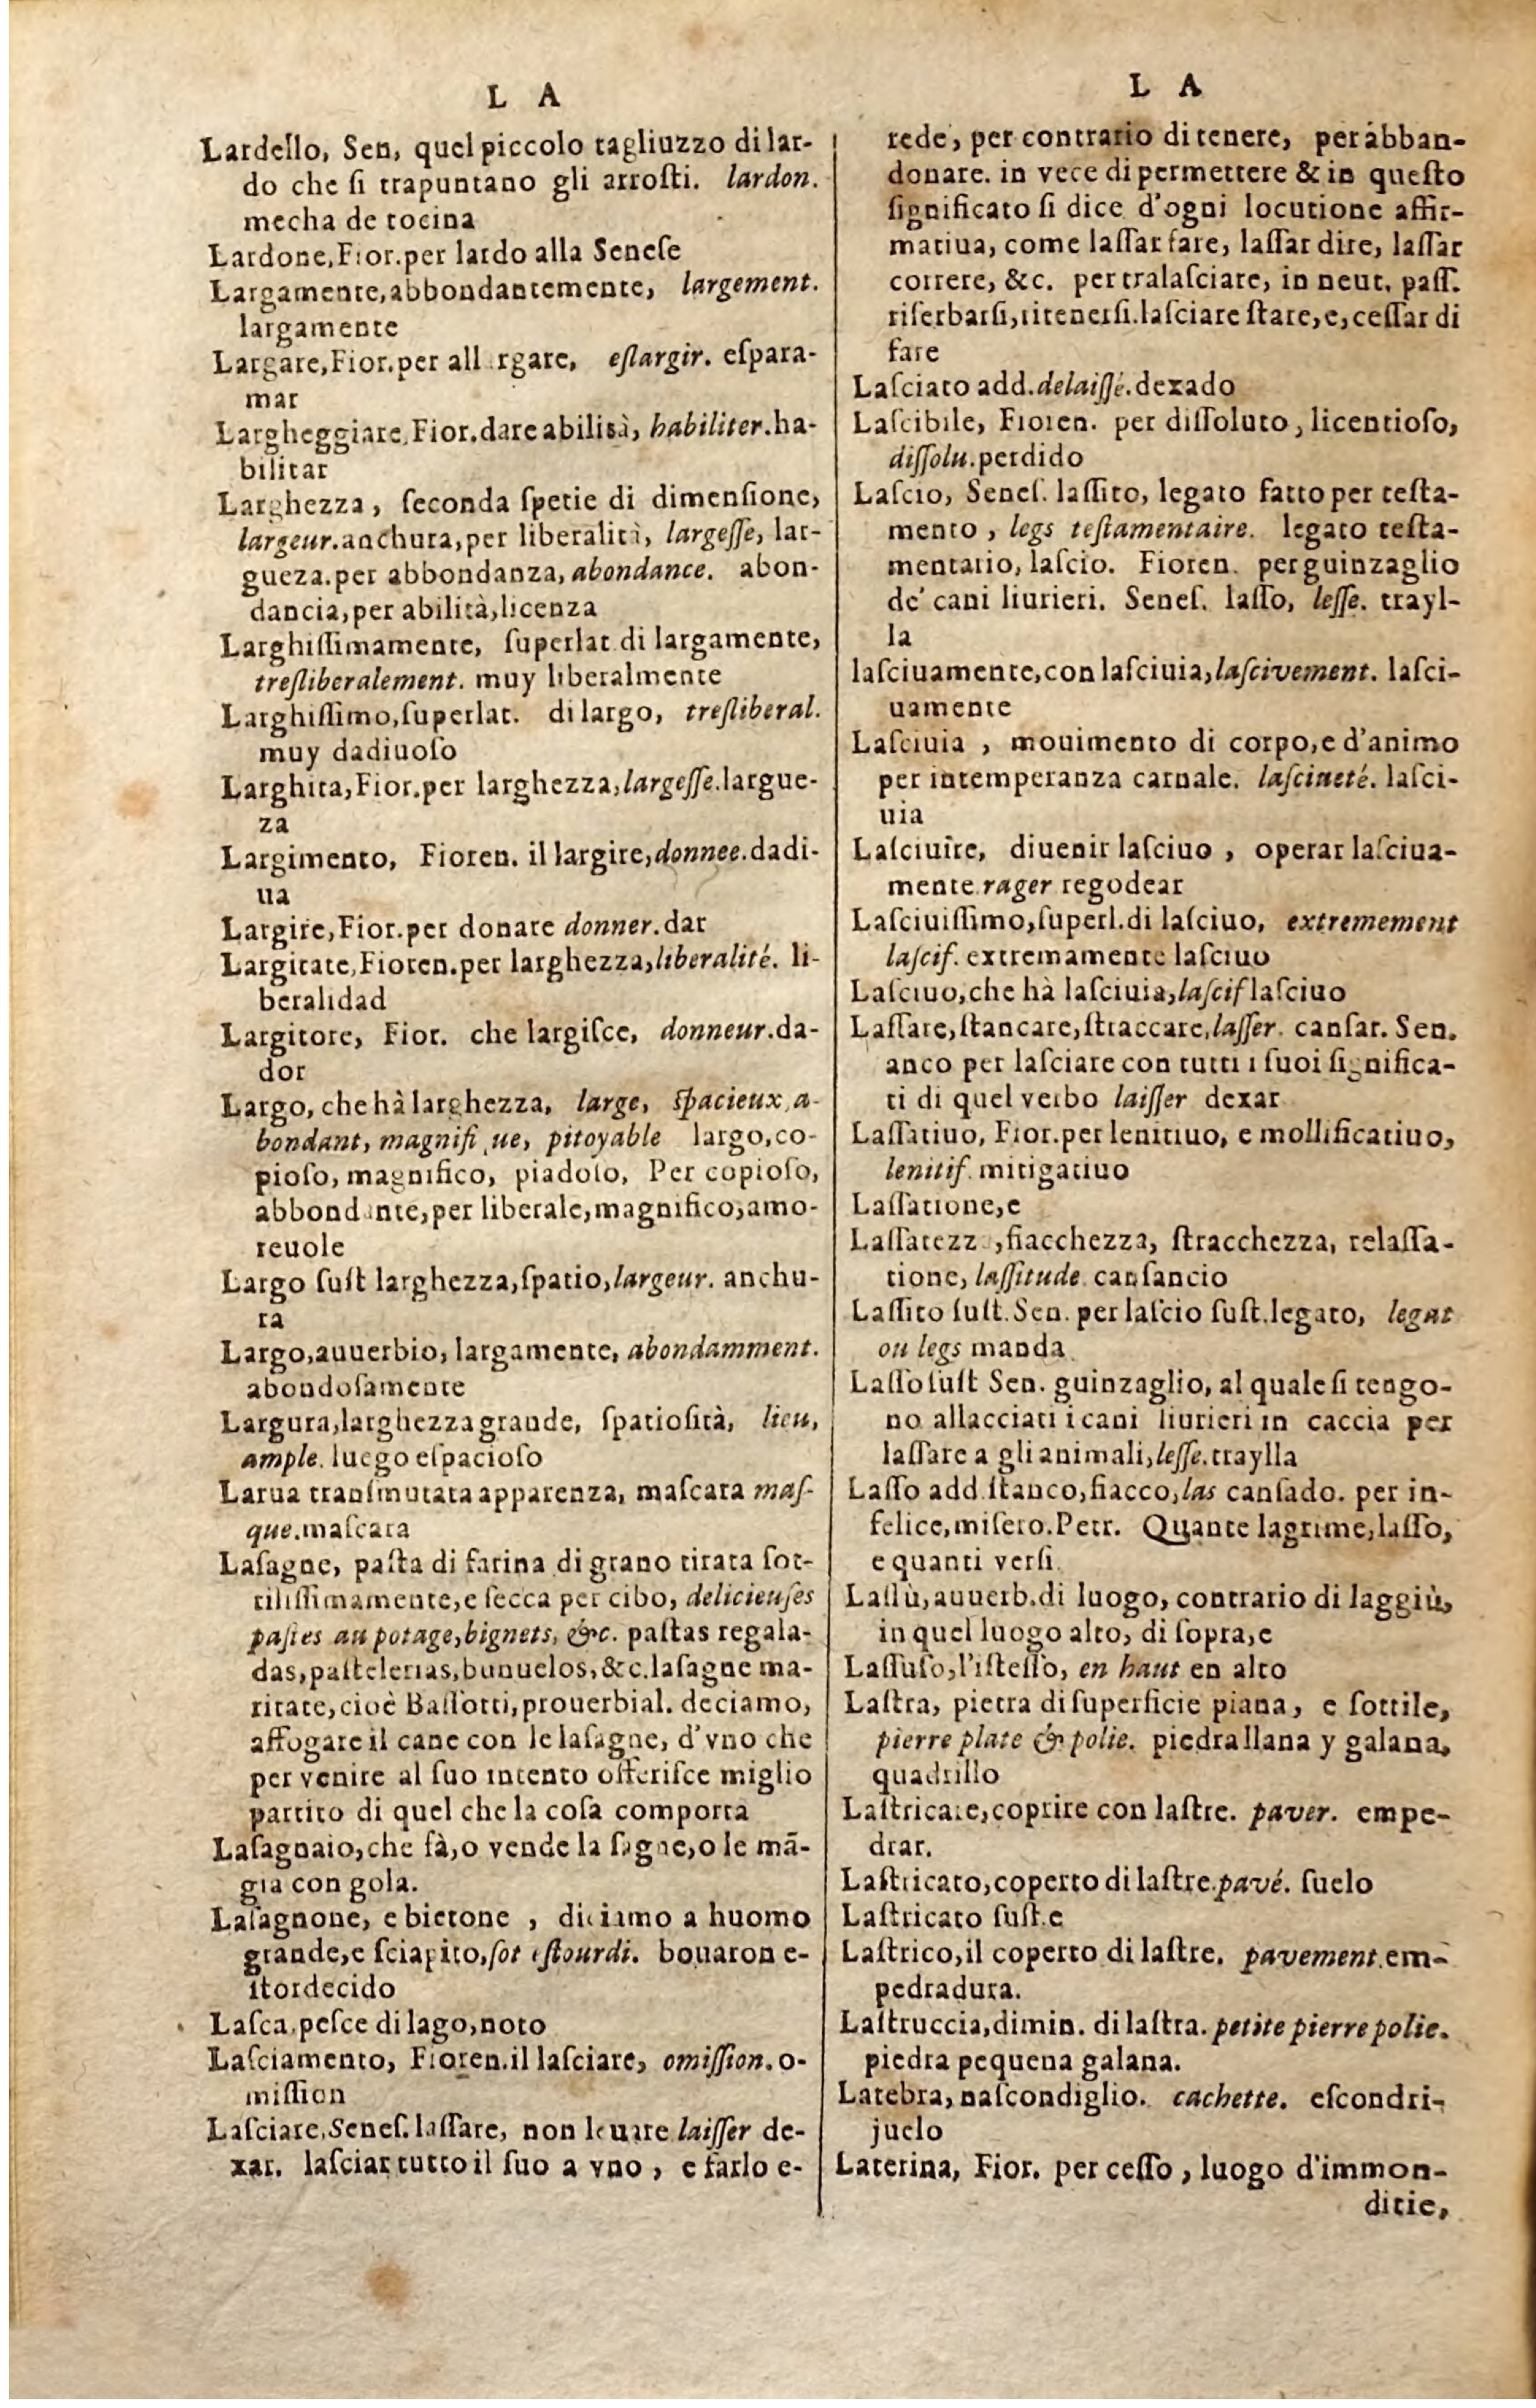 L A
Lardello, Sen, quel piccolo tagliuzzo di lar-
do che ſi trapuntano gli arroſti. lardon.
mecha de tocina
Lardone, Fior. per lardo alla Seneſe
Largamente, abbondantemente, largement.
largamente
Largare, Fior. per all rgare, eſlargir. eſpara-
mar
Largheggiare, Fior. dare abilità, habiliter. ha-
bilitar
Larghezza, ſeconda ſpetie di dimenſione,
largeur. anchura, per liberalità, largeſſe, lar-
gueza. per abbondanza, abondance. abon-
dancia, per abilità, licenza
Larghiſſimamente, ſuperlat di largamente,
treſliberalement. muy liberalmente
Larghiſſimo, ſuperlat. di largo, treſliberal.
muy dadiuoſo
Larghita, Fior. per larghezza, largeſſe. largue-
za
Largimento, Fioren. il largire, donnee. dadi-
ua
Largire, Fior. per donare donner. dar
Largitate, Fioren. per larghezza, liberalité. li-
beralidad
Largitore, Fior. che largiſce, donneur. da-
dor
Largo, che hà larghezza, large, ſpacieux, a-
bondant, magnifi ue, pitoyable largo, co-
pioſo, magnifico, piadoſo, Per copioſo,
abbondante, per liberale, magnifico, amo-
reuole
Largo ſuſt larghezza, ſpatio, largeur. anchu-
ra
Largo, auuerbio, largamente, abondamment.
abondoſamente
Largura, larghezza grande, ſpatioſità, lieu,
ample. luego eſpacioſo
Larua tranſmutata apparenza, maſcara maſ-
que. maſcara
Laſagne, paſta di farina di grano tirata ſot-
tiliſſimamente, e ſecca per cibo, delicieuſes
paſtes au potage, bignets, &c. paſtas regala-
das, paſtelerias, bunuelos, &c. laſagne ma-
ritate, cioè Baſſotti, prouerbial. deciamo,
affogare il cane con le laſagne, d'vno che
per venire al ſuo intento offeriſce miglio
partito di quel che la coſa comporta
Laſagnaio, che fà, o vende la ſagne, o le mã-
gia con gola.
Laſagnone, e bietone, diciamo a huomo
grande, e ſciapito, ſot eſtourdi. bouaron e-
ſtordecido
Laſca, peſce di lago, noto
Laſciamento, Fioren. il laſciare, omiſſion. o-
miſſion
Laſciare, Seneſ. laſſare, non leuare laiſſer de-
xar. laſciar tutto il ſuo a vno, e farlo e-
L A
rede, per contrario di tenere, per abban-
donare. in vece di permettere & in queſto
ſignificato ſi dice d'ogni locutione affir-
matiua, come laſſar fare, laſſar dire, laſſar
correre, &c. per tralaſciare, in neut. paſſ.
riſerbarſi, ritenerſi. laſciare ſtare, e, ceſſar di
fare
Laſciato add. delaiſſé. dexado
Laſcibile, Fioren. per diſſoluto, licentioſo,
diſſolu. perdido
Laſcio, Seneſ. laſſito, legato fatto per teſta-
mento, legs teſtamentaire. legato teſta-
mentario, laſcio. Fioren. per guinzaglio
de' cani liurieri. Seneſ. laſſo, leſſe. trayl-
la
laſciuamente, con laſciuia, laſcivement. laſci-
uamente
Laſciuia, mouimento di corpo, e d'animo
per intemperanza carnale. laſciueté. laſci-
uia
Laſciuire, diuenir laſciuo, operar laſciua-
mente rager regodear
Laſciuiſſimo, ſuperl. di laſciuo, extremement
laſcif. extremamente laſciuo
Laſciuo, che hà laſciuia, laſcif laſciuo
Laſſare, ſtancare, ſtraccare, laſſer. canſar. Sen.
anco per laſciare con tutti i ſuoi ſignifica-
ti di quel verbo laiſſer dexar
Laſſatiuo, Fior. per lenitiuo, e mollificatiuo,
lenitif. mitigatiuo
Laſſatione, e
Laſſatezz , fiacchezza, ſtracchezza, relaſſa-
tione, laſſitude. canſancio
Laſſito ſuſt. Sen. per laſcio ſuſt. legato, legat
ou legs manda
Laſſo ſuſt Sen. guinzaglio, al quale ſi tengo-
no allacciati i cani liurieri in caccia per
laſſare a gli animali, leſſe. traylla
Laſſo add. ſtanco, fiacco, las canſado. per in-
felice, miſero. Petr. Quante lagrime, laſſo,
e quanti verſi
Laſſù, auuerb. di luogo, contrario di laggiù,
in quel luogo alto, di ſopra, e
Laſſuſo, l'iſteſſo, en haut en alto
Laſtra, pietra di ſuperficie piana, e ſottile,
pierre plate & polie. piedra llana y galana,
quadrillo
Laſtricare, coprire con laſtre. paver. empe-
drar.
Laſtricato, coperto di laſtre. pavé. ſuelo
Laſtricato ſuſt. e
Laſtrico, il coperto di laſtre. pavement. em-
pedradura.
Laſtruccia, dimin. di laſtra. petite pierre polie.
piedra pequena galana.
Latebra, naſcondiglio. cachette. eſcondri-
juelo
Laterina, Fior. per ceſſo, luogo d'immon-
ditie,